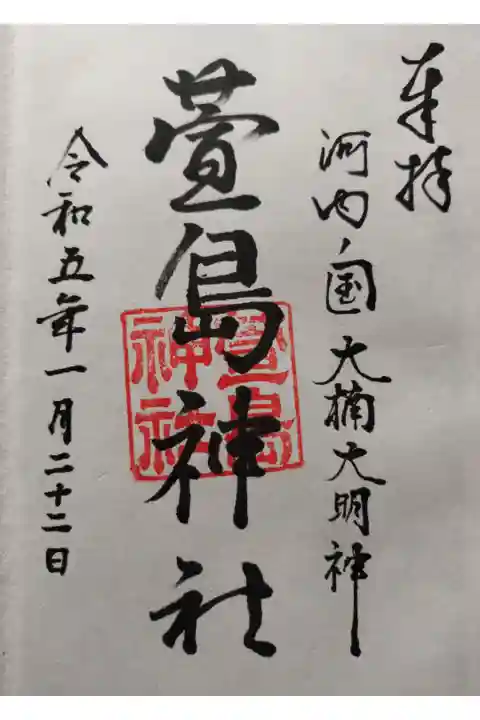 奉拝
河内ノ国 大楠大明神
萱島神社
萱島
神社
令和五年一月二十二日